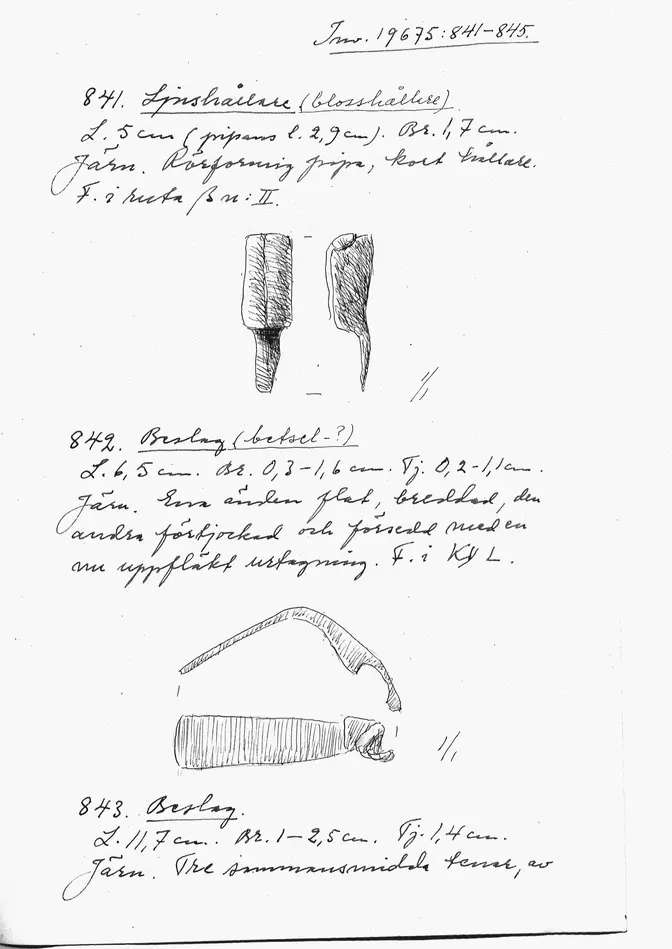 Inv. 19675:841-845.
841. Ljushållare (blosshållare)
L. 5 cm (pipans l. 2,9 cm). Br. 1,7 cm.
Järn. Rörformig pipa, kort hållare.
F. i ruta β n:II.
1/1
842. Beslag (betsel-?)
L. 6,5 cm. Br. 0,3-1,6 cm. Tj. 0,2-1,1 cm.
Järn. Ena änden flat, breddad, den
andra förtjockad och försedd med en
nu uppfläkt urtagning. F. i L.
1/1
843. Beslag.
L. 11,7 cm. Br. 1-2,5 cm. Tj. 1,4 cm.
Järn. Tre sammansmidda tenar, av